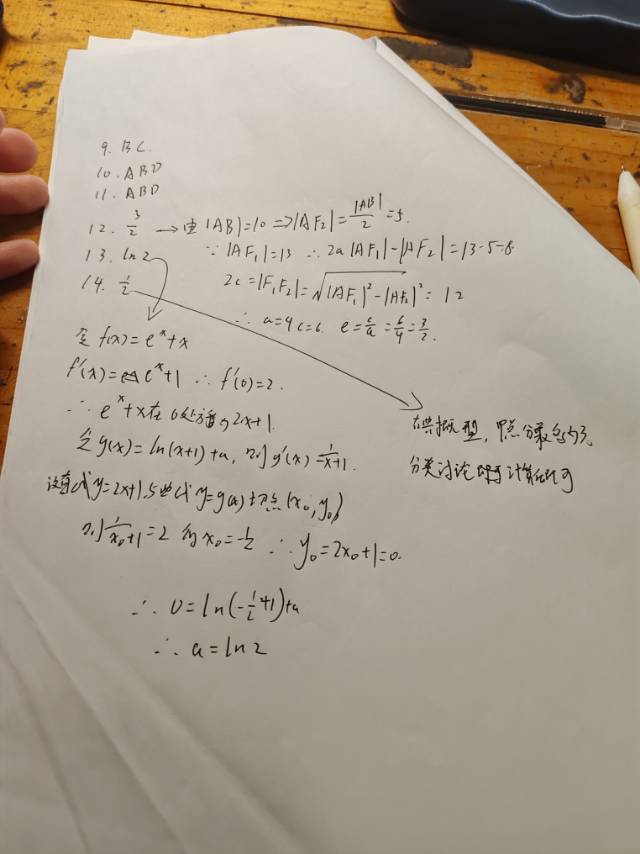 9. BC.
10. ABD
11. ABD
12. 3/2 → 由|AB|=10 ⇒ |AF₂|=|AB|/2=5.
∵ |AF₁|=13 ∴ 2a |AF₁|-|AF₂|=13-5=8
13. ln2
2c=|F₁F₂|=√(|AF₁|²-|AF₂|²)=12
14. 1/2
∴ a=4 c=6. e=c/a=6/4=3/2.
令 f(x)=eˣ+x
f'(x)=eˣ+1 ∴ f'(0)=2.
∴ eˣ+x在0处 2x+1.
令g(x)=ln(x+1)+a, 则g'(x)=1/(x+1).
设直线y=2x+1与曲线y=g(x)切点(x₀,y₀)
则1/(x₀+1)=2 的x₀=-1/2 ∴ y₀=2x₀+1=0.
∴ 0=ln(-1/2+1)+a
∴ a=ln2
型, 甲
分类讨论 计算 可